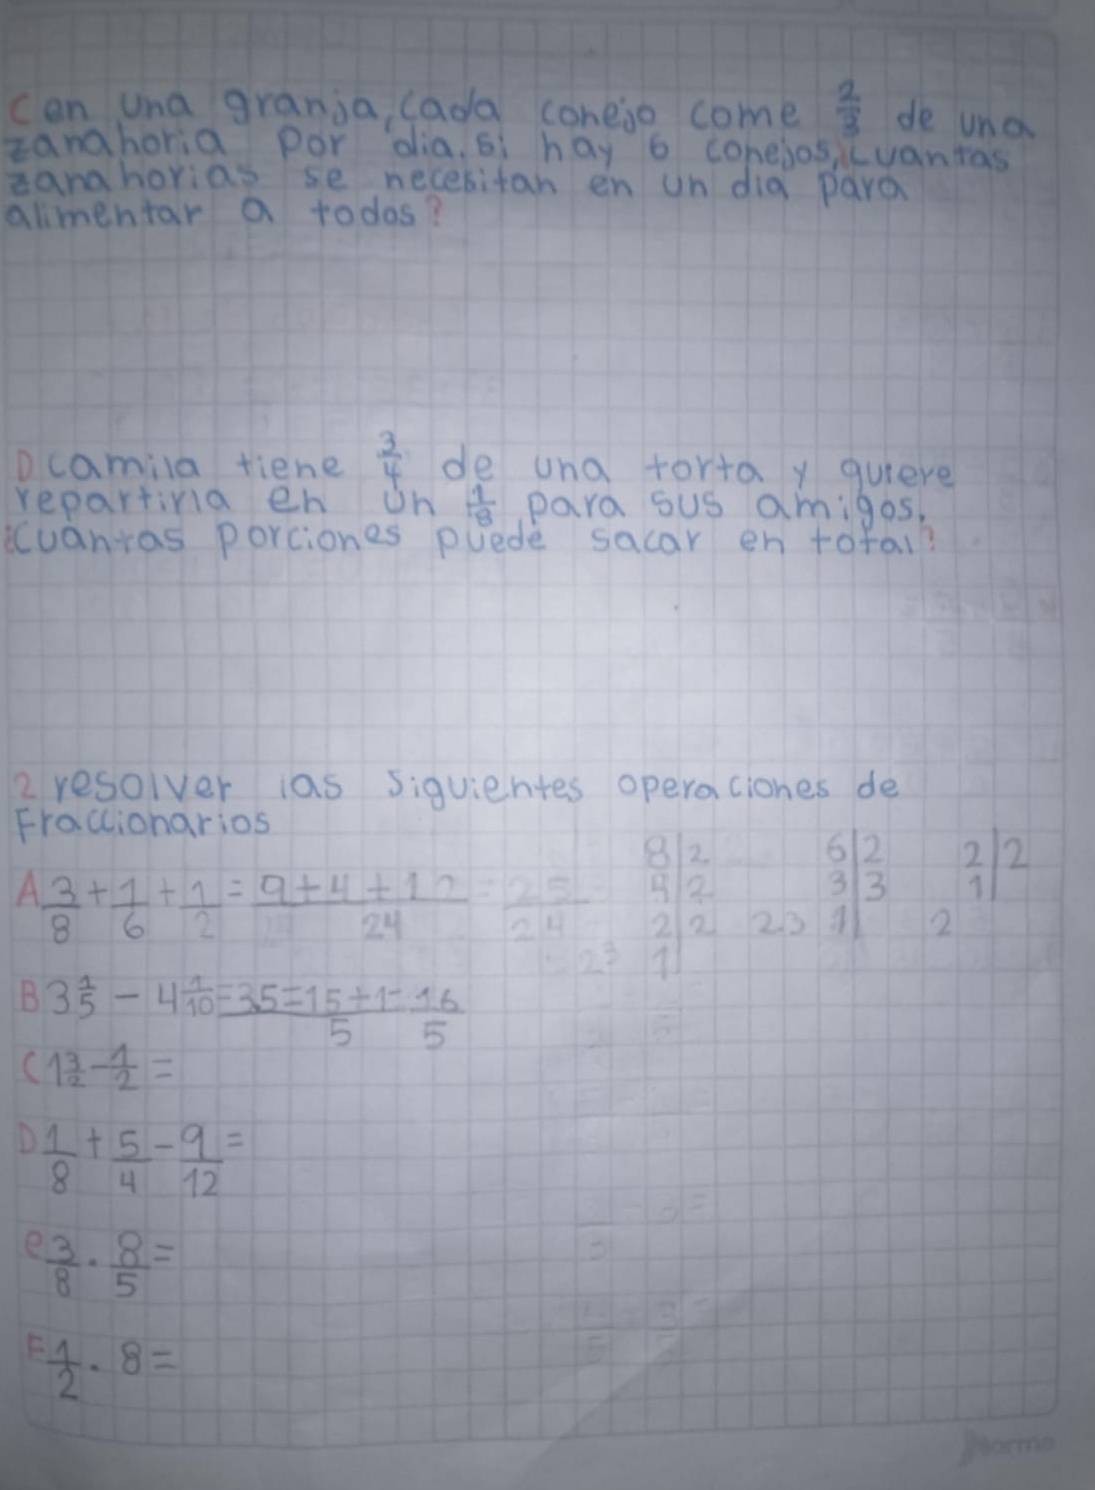 C en una granja, cada conejo come 2/3 de una
zanahoria por dia. si hay 6 conejos, cuantas
zanahorias se necesitan en un dia para
alimentar a todos?
D camila tiene 3/4 de una torta y quiere
repartirla en un 1/8 para sus amigos.
¿Cuantas porciones puede sacar en total?
2 resolver las siguientes operaciones de
Fraccionarios
A 3/8 + 1/6 + 1/2 = 9+4+12/24 = 25/24
8|2 6|2 2|2
4|2 3|3 1|
2|2 23 1| 2
23 1|
B 3 1/5 - 4 1/10 = 3.5=15+1/5 = 16/5
C 1 3/2 - 1/2 =
D 1/8 + 5/4 - 9/12 =
e 3/8 . 8/5 =
F 1/2 . 8 =
Norma